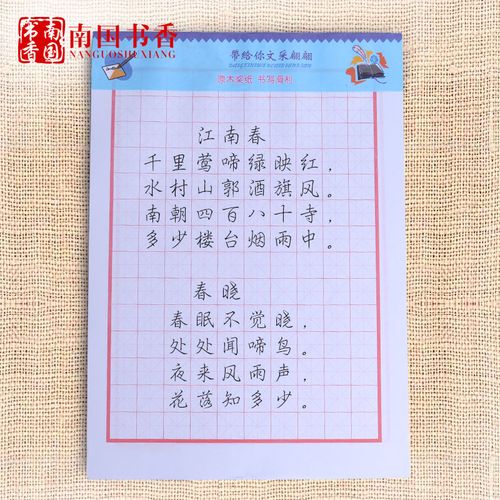 南国书香
南国书香
NANGUOSHUXIANG
带给你文采翩翩
原木浆纸 书写真利
江南春
千里莺啼绿映红，
水村山郭酒旗风。
南朝四百八十寺，
多少楼台烟雨中。
春晓
春眠不觉晓，
处处闻啼鸟。
夜来风雨声，
花落知多少。